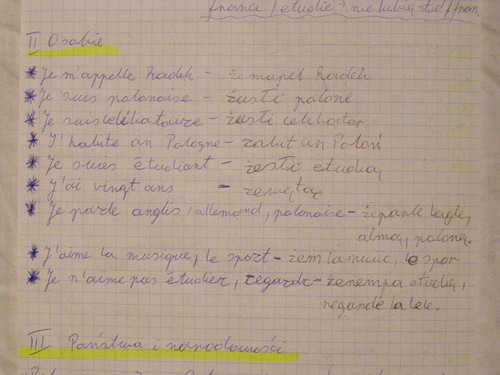 france (etudie) nie lubię stud/fran.
II O sobie
* Je m'appelle Radek - żemapel Radek
* Je suis polonaise - żusłi polone
* Je suis célibataire - żusłi celebater
* J'habite an Pologne - żabit an Poloń
* Je sues étudiant - żesłi etudią
* J'ai vingt ans - żewętą
* Je parle anglis, allemand, polonaise - żeparle lagle,
almą, polonę.
* J'aime la musique, le sport - żem la music, le spor
* Je n'aime pas étudier, regardr - żenempa etudie,
regarde la tele.
III Państwa i narodowości